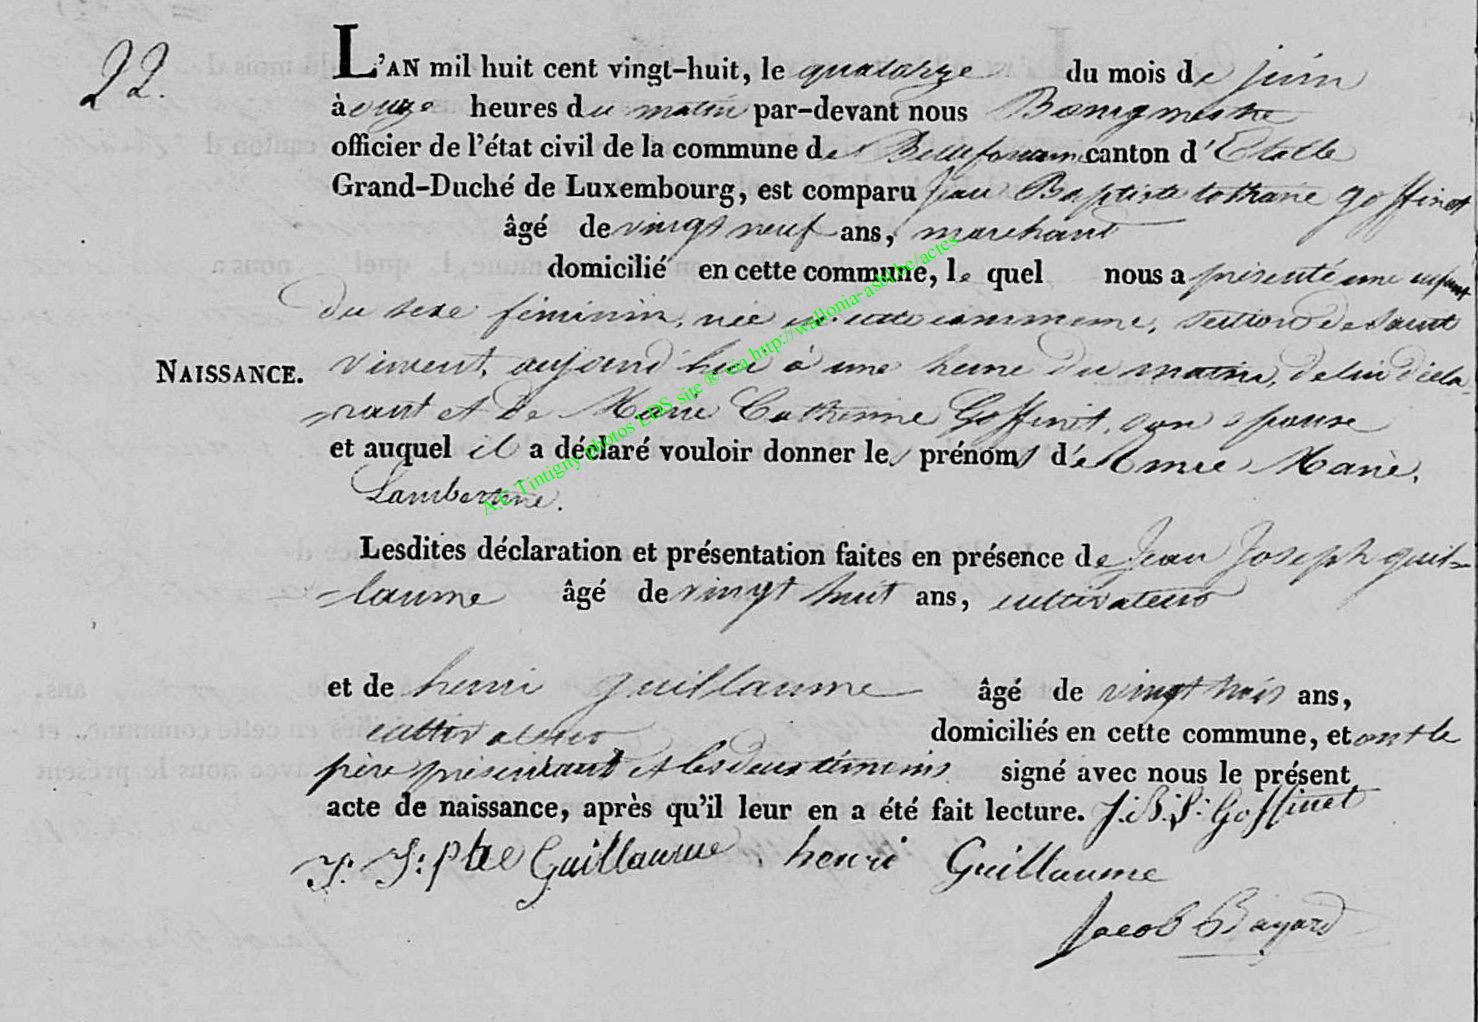 22.
L'AN mil huit cent vingt-huit, le quatorze du mois de juin
à onze heures du matin par-devant nous Bourgmestre
officier de l'état civil de la commune de Bellefontaine canton d'Etalle
Grand-Duché de Luxembourg, est comparu Jean Baptiste lothaire Goffinet
âgé de vingt neuf ans, marchand
domicilié en cette commune, le quel nous a présenté une enfant
du sexe féminin, née en cette commune, section de Saint
NAISSANCE. vincent, aujourd'hui à une heure du matin, de lui décla-
rant et de Marie Catherine Goffinet, son épouse
et auquel il a déclaré vouloir donner les prénoms d' Marie,
Lambertine.
Lesdites déclaration et présentation faites en présence de Jean Joseph guil=
=laume âgé de vingt huit ans, cultivateur
et de henri guillaume âgé de vingt trois ans,
cultivateur domiciliés en cette commune, et ont le
père présentant et les deux témoins signé avec nous le présent
acte de naissance, après qu'il leur en a été fait lecture. J. B. Goffinet
J. J: Guillaume. henri Guillaume
Jacob Bayard
A.C Tintigny photos EDS site ® cia http://wallonia-asbl.be/actes